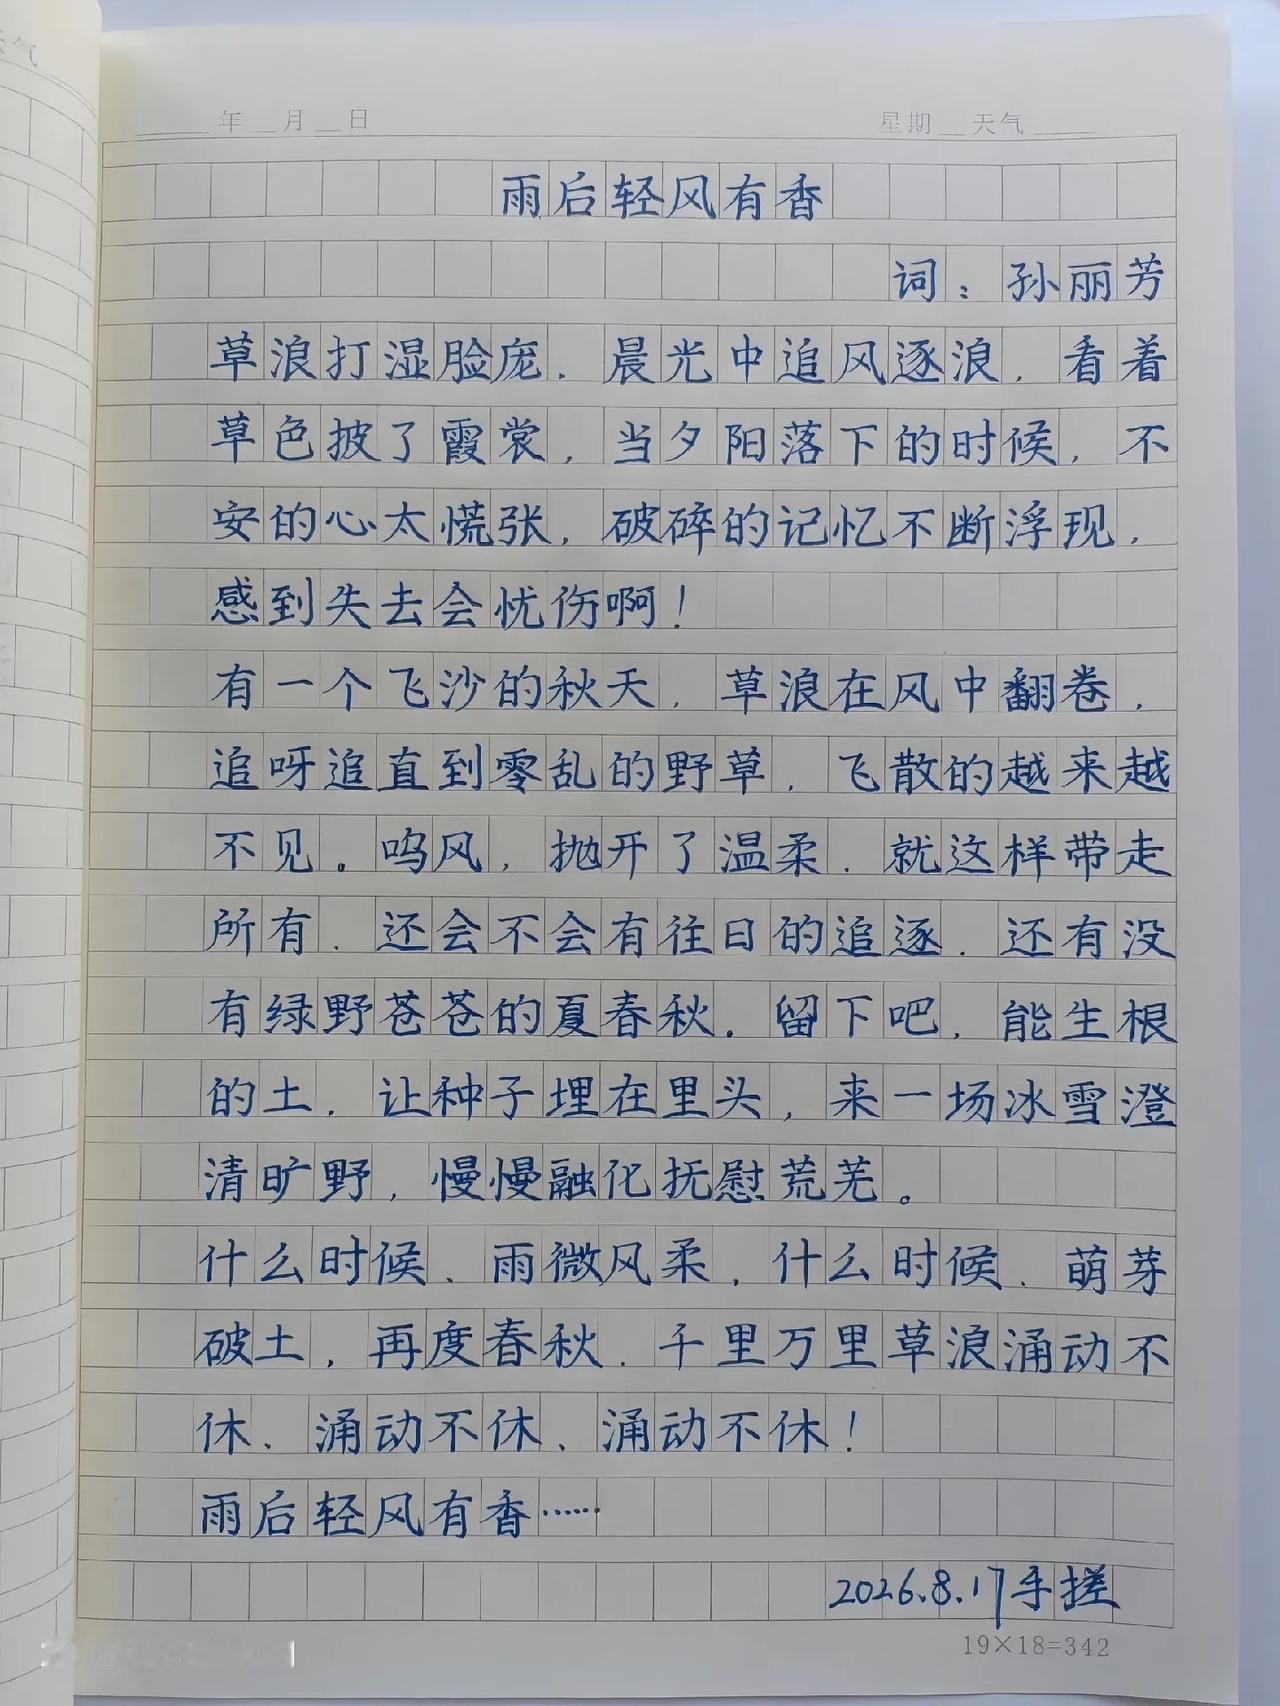 天气
年 月 日 星期 天气
雨后轻风有香
词：孙丽芳
草浪打湿脸庞，晨光中追风逐浪，看着
草色披了霞裳，当夕阳落下的时候，不
安的心太慌张，破碎的记忆不断浮现，
感到失去会忧伤啊！
有一个飞沙的秋天，草浪在风中翻卷，
追呀追直到零乱的野草，飞散的越来越
不见。呜风，抛开了温柔，就这样带走
所有，还会不会有往日的追逐，还有没
有绿野苍苍的夏春秋。留下吧，能生根
的土，让种子埋在里头，来一场冰雪澄
清旷野，慢慢融化抚慰荒芜。
什么时候、雨微风柔，什么时候、萌芽
破土，再度春秋、千里万里草浪涌动不
休、涌动不休、涌动不休！
雨后轻风有香……
2026.8.17手搓
19×18=342